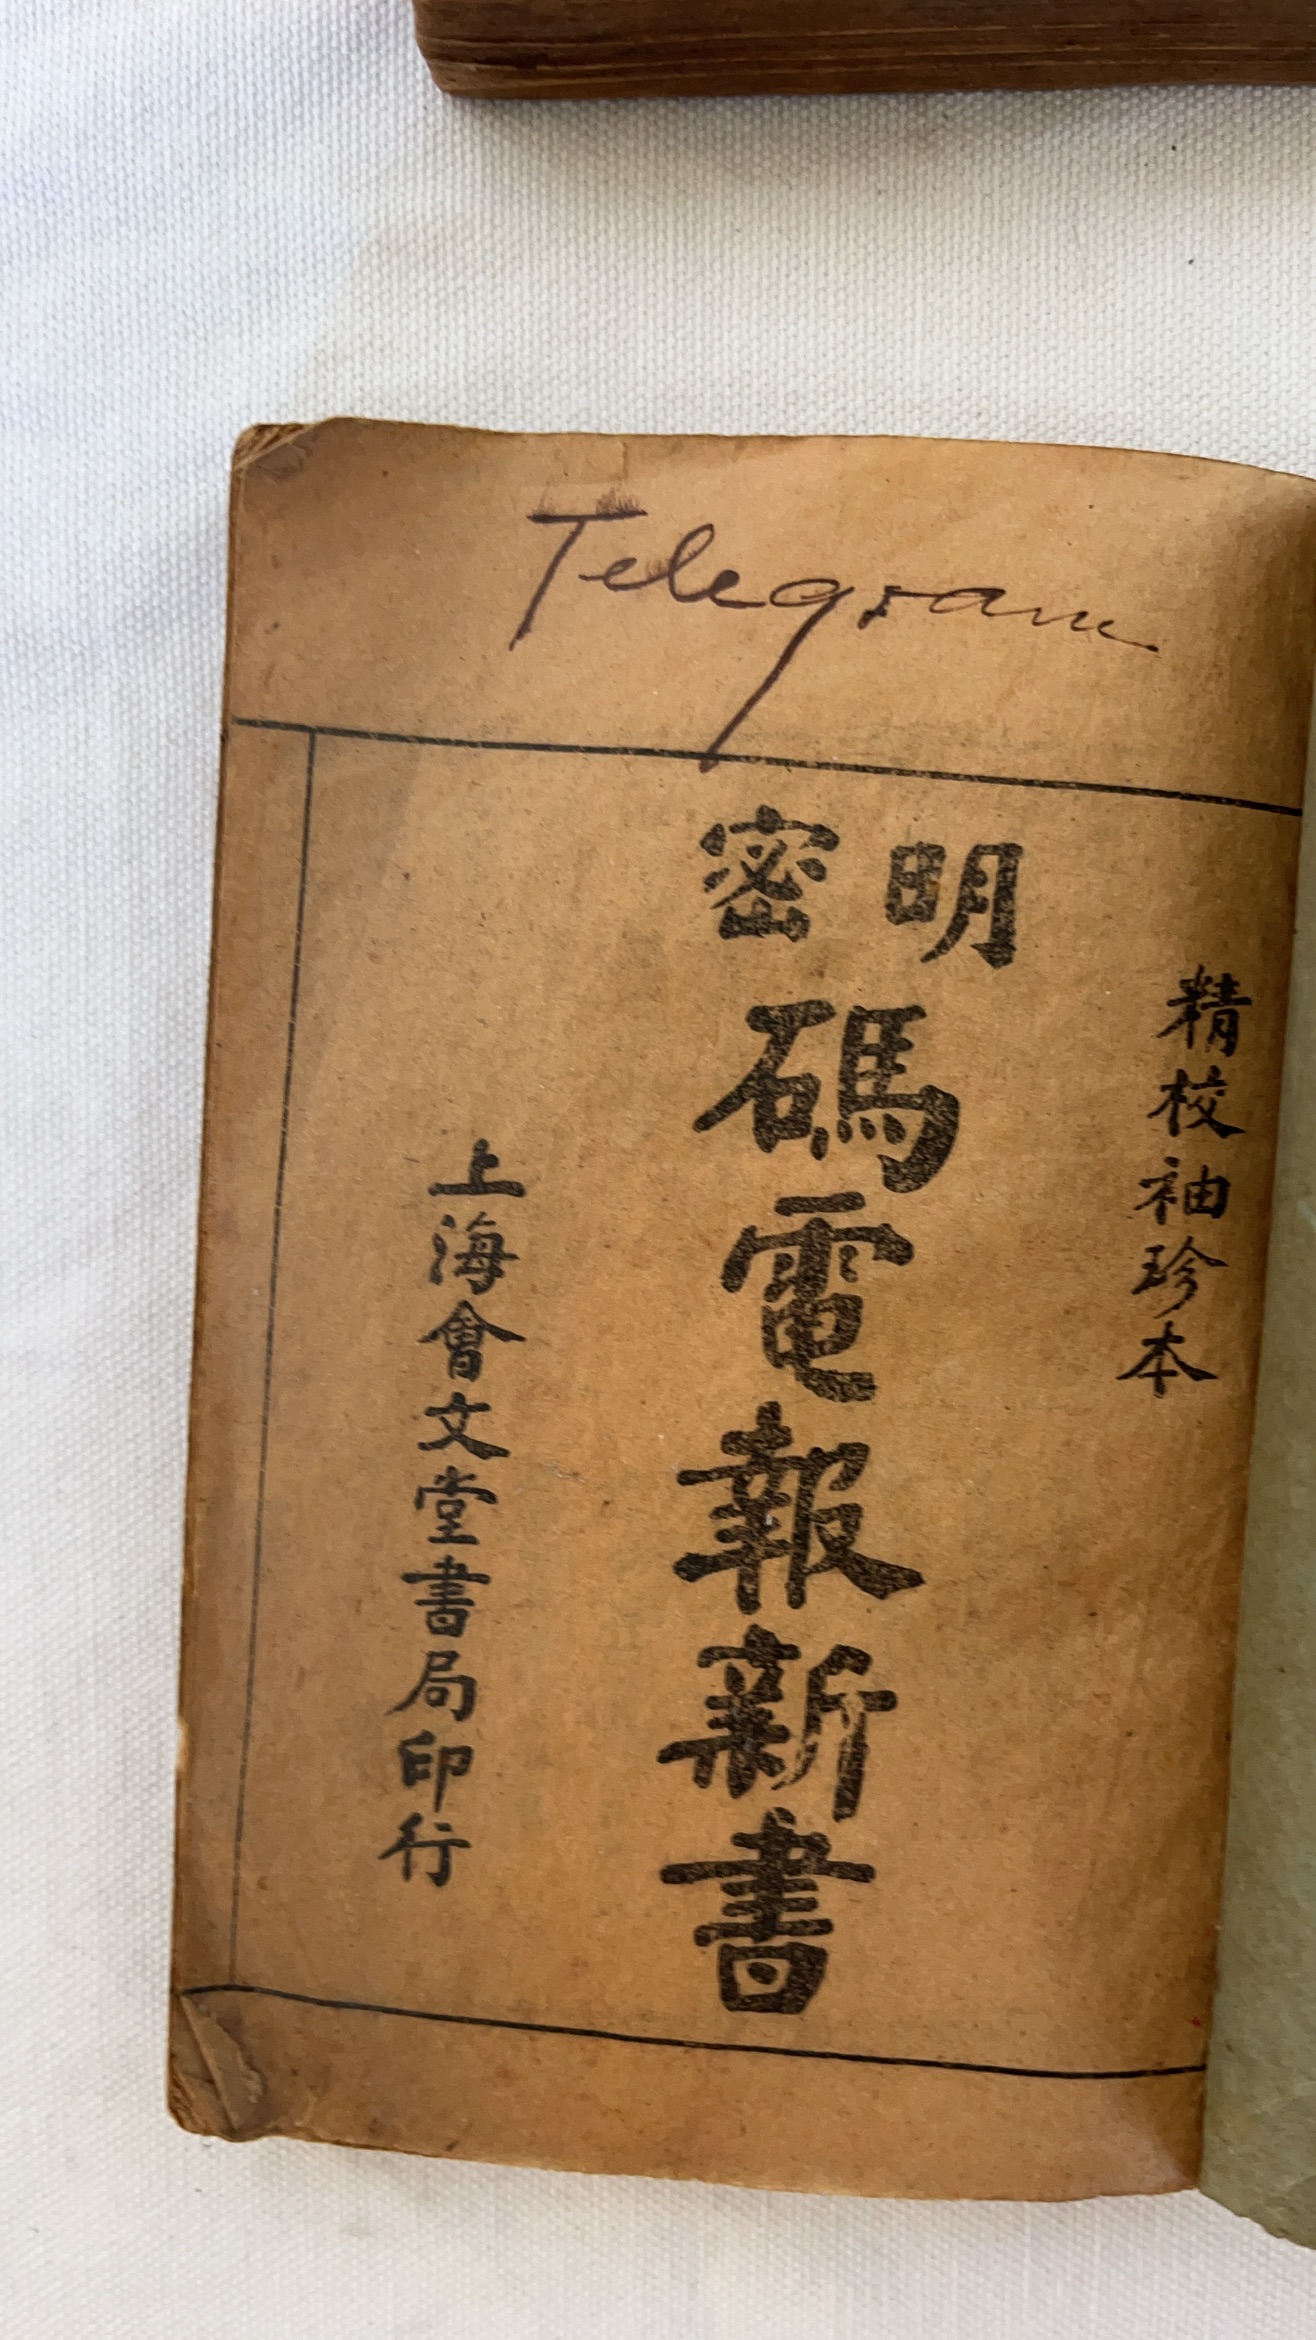 Telegram
精校袖珍本
明密
碼電報新書
上海會文堂書局印行